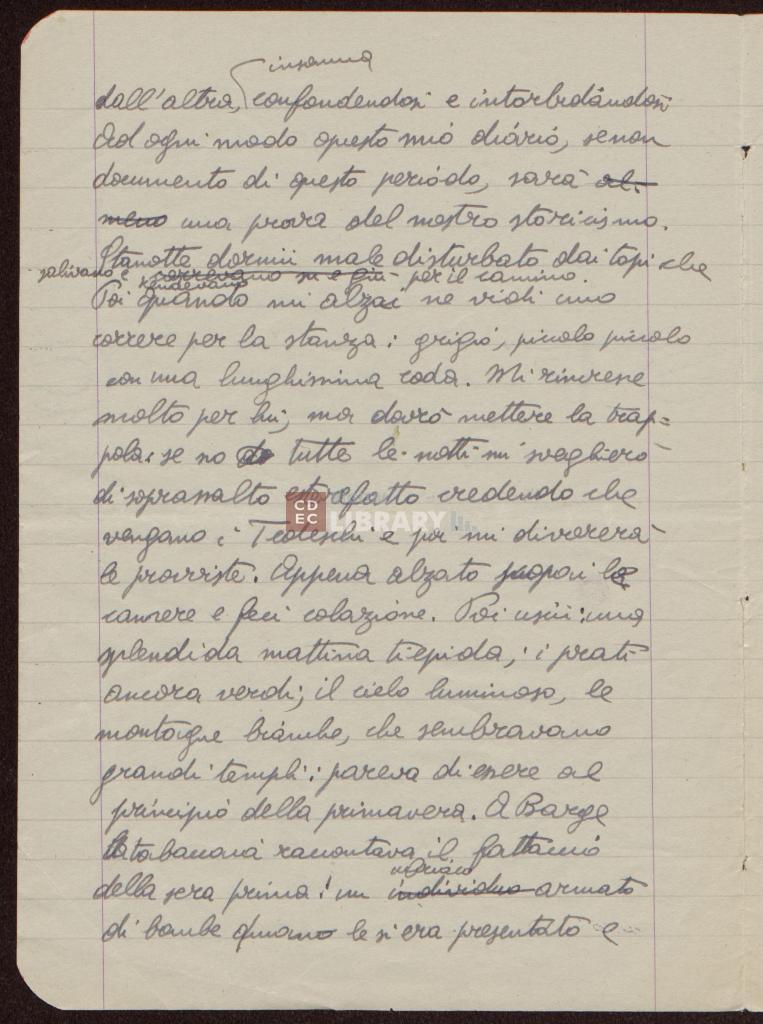 insomma
dall'altra, confondendosi e intorbidandosi
Ad ogni modo questo mio diario, se non
documento di questo periodo, sarà al-
meno una prova del nostro storicismo.
Stanotte dormii male disturbato dai topi che
salivano e correvano su e giù per il camino.
scendevano
Poi quando mi alzai ne vidi uno
correre per la stanza: grigio, piccolo piccolo
con una lunghissima coda. Mi rincresce
molto per lui, ma dovrò mettere la trap=
pola: se no tutte le notti mi sveglierò
di soprassalto esterefatto credendo che
vengano i Tedeschi e poi mi divorerà
le provviste. Appena alzato scopai le
camere e feci colazione. Poi uscii: una
splendida mattina tiepida; i prati
ancora verdi; il cielo luminoso, le
montagne bianche, che sembravano
grandi templi: pareva di essere al
principio della primavera. A Barge
la tabaccaia raccontava il fattaccio
della sera prima: un individuo armato
di bombe a mano le si era presentato e
CDEC LIBRARY